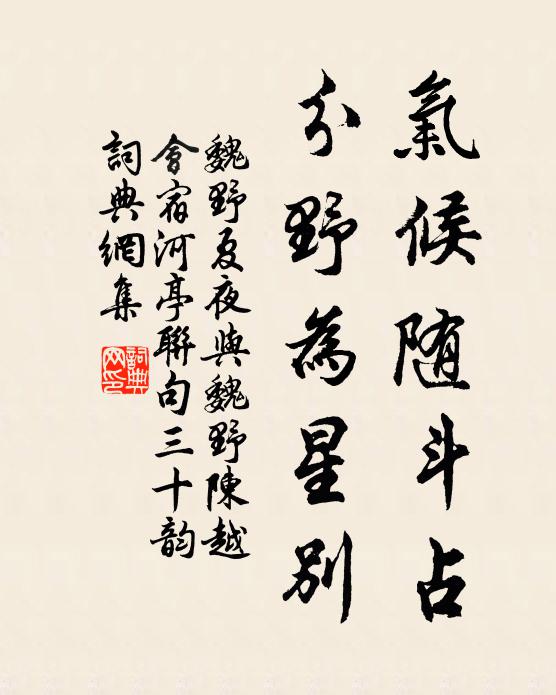 氣候随斗占
分野為星別
魏野夏夜與魏野陳越
會宿河亭聯句三十韵
詞典網集
詞典网印